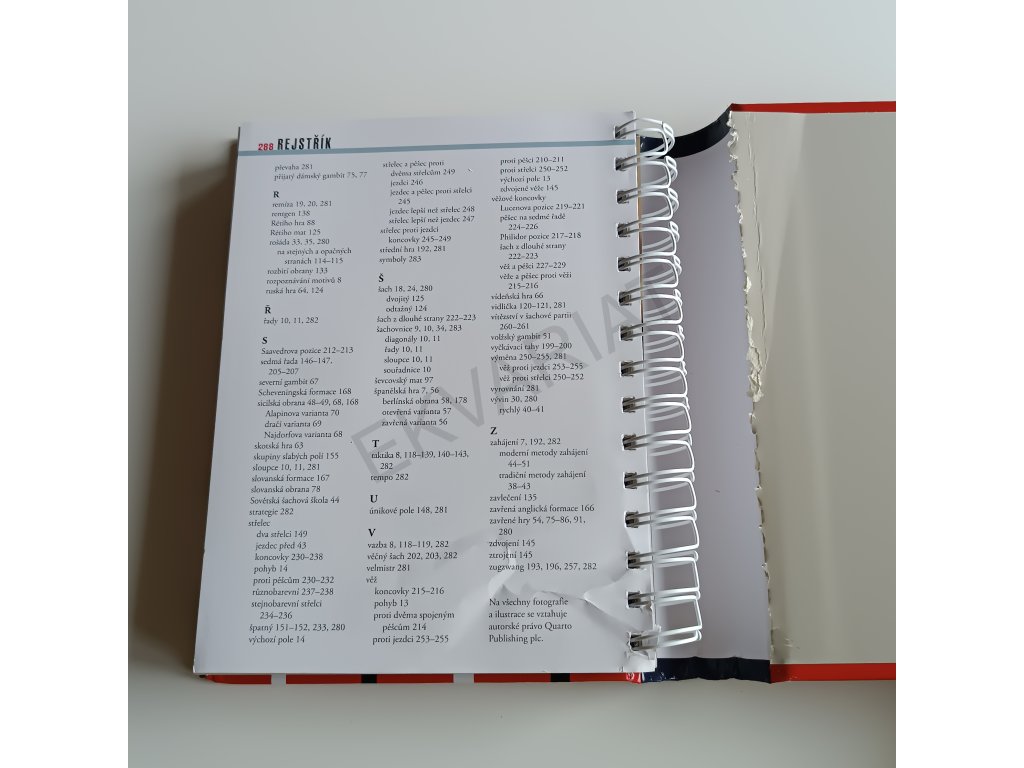 288 REJSTŘÍK
převaha 281
přijatý dámský gambit 75, 77
R
remíza 19, 20, 281
rentgen 138
Rétiho hra 88
Rétiho mat 125
rošáda 33, 35, 280
na stejných a opačných
stranách 114–115
rozbití obrany 133
rozpoznávání motivů 8
ruská hra 64, 124
Ř
řady 10, 11, 282
S
Saavedrova pozice 212–213
sedmá řada 146–147,
205–207
severní gambit 67
Scheveningská formace 168
sicilská obrana 48–49, 68, 168
Alapinova varianta 70
dračí varianta 69
Najdorfova varianta 68
skotská hra 63
skupiny slabých polí 155
sloupce 10, 11, 281
slovanská formace 167
slovanská obrana 78
Sovětská šachová škola 44
strategie 282
střelec
dva střelci 149
jezdec před 43
koncovky 230–238
pohyb 14
proti pěšcům 230–232
různobarevní 237–238
stejnobarevní střelci
234–236
špatný 151–152, 233, 280
výchozí pole 14
střelec a pěšec proti
dvěma střelcům 249
jezdci 246
jezdec a pěšec proti střelci
245
jezdec lepší než střelec 248
střelec lepší než jezdec 247
střelec proti jezdci
koncovky 245–249
střední hra 192, 281
symboly 283
Š
šach 18, 24, 280
dvojitý 125
odtažný 124
šach z dlouhé strany 222–223
šachovnice 9, 10, 34, 283
diagonály 10, 11
řady 10, 11
sloupce 10, 11
souřadnice 10
ševcovský mat 97
španělská hra 7, 56
berlínská obrana 58, 178
otevřená varianta 57
zavřená varianta 56
T
taktika 8, 118–139, 140–143,
282
tempo 282
U
únikové pole 148, 281
V
vazba 8, 118–119, 282
věčný šach 202, 203, 282
velmistr 281
věž
koncovky 215–216
pohyb 13
proti dvěma spojeným
pěšcům 214
proti jezdci 253–255
proti pěšci 210–211
proti střelci 250–252
výchozí pole 13
zdvojené věže 145
věžové koncovky
Lucenova pozice 219–221
pěšec na sedmé řadě
224–226
Philidor pozice 217–218
šach z dlouhé strany
222–223
věž a pěšci 227–229
věže a pěšec proti věži
215–216
vídeňská hra 66
vidlička 120–121, 281
vítězství v šachové partii
260–261
volžský gambit 51
vyčkávací tahy 199–200
výměna 250–255, 281
věž proti jezdci 253–255
věž proti střelci 250–252
vyrovnání 281
vývin 30, 280
rychlý 40–41
Z
zahájení 7, 192, 282
moderní metody zahájení
44–51
tradiční metody zahájení
38–43
zavlečení 135
zavřená anglická formace 166
zavřené hry 54, 75–86, 91,
280
zdvojení 145
ztrojení 145
zugzwang 193, 196, 257, 282
Na všechny fotografie
a ilustrace se vztahuje
autorské právo Quarto
Publishing plc.
EKVARIAT